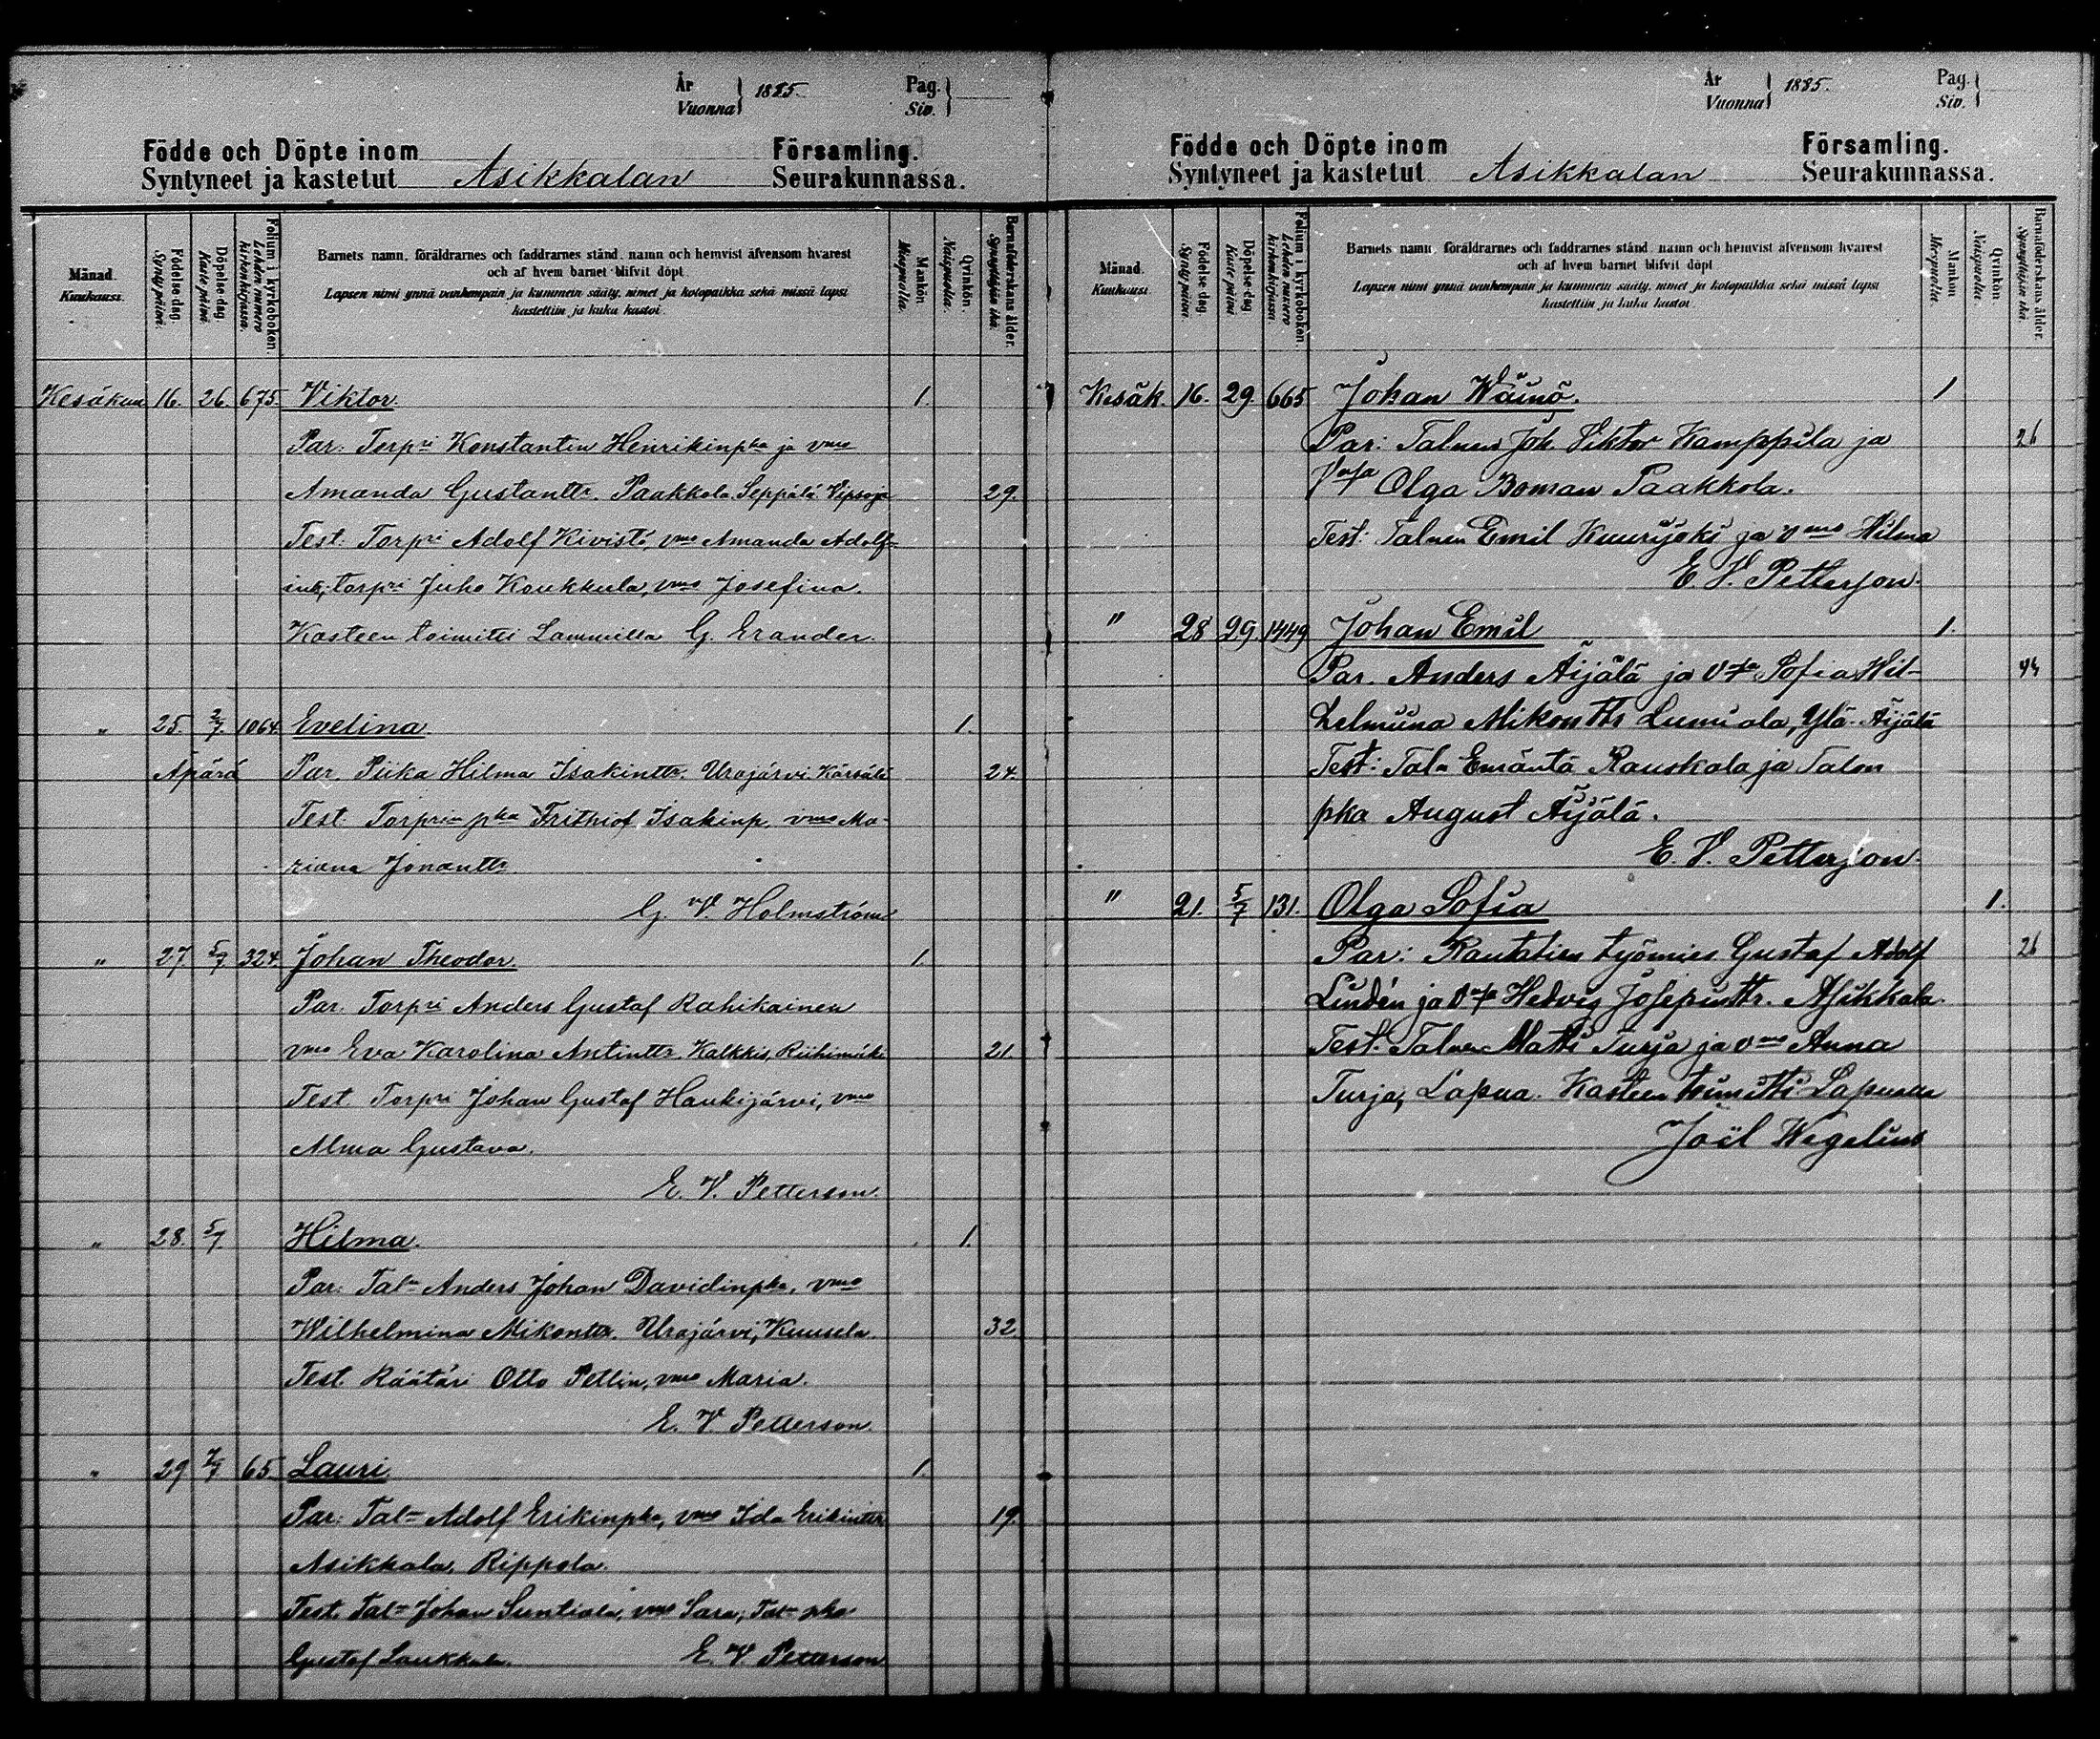 År
Vuonna } 1885.
Pag.
Siv. }
Födde och Döpte inom
Syntyneet ja kastetut Asikkalan
Församling.
Seurakunnassa.
Månad.
Kuukausi.
Födelse dag.
Synty päivä.
Döpelse dag.
Kaste päivä.
Folium i kyrkoboken.
Lehden numero kirkonkirjassa.
Barnets namn, föräldrarnes och faddrarnes stånd, namn och hemvist äfvensom hvarest
och af hvem barnet blifvit döpt.
Lapsen nimi ynnä vanhempain ja kummein sääty, nimet ja kotopaikka sekä missä lapsi
kastettiin ja kuka kastoi.
Mankön
Miespuolia.
Qvinkön.
Naispuolia.
Barnaföderskans ålder.
Synnyttäjän ikä.
Kesäkuu 16. 26. 675. Viktor 1.
Par: Torpri Konstantin Henrikinpka ja vmo
Amanda Gustantr. Paakkola Seppälä 29.
Test: Torpri Adolf Kivistö, vmo Amanda Adolf-
torpri Juho Koukkula, vmo Josefina.
Kasteen toimitti Lammilla G. Erander.
" 25. 2/7. 1064. Evelina 1.
Äpärä Par. Piika Hilma Isakintr. Urajärvi Kärsälä 24.
Test: Torprin pka Frithiof Isakinp. vmo Ma-
riana Jonantr
G. V. Holmström
" 27 5/7 324. Johan Theodor 1.
Par. Torpri Anders Gustaf Rahikainen
vmo Eva Karolina Antintr. Kalkkis, Riihimäki 21.
Test Torpri Johan Gustaf Haukijärvi, vmo
Alma Gustava.
E. V. Petterson.
" 28. 5/7. Hilma. 1.
Par: Taln Anders Johan Davidinpka, vmo
Wilhelmina Mikontr. Urajärvi, Kuusela. 32
Test. Räätäri Otto Petlin, vmo Maria.
E. V. Petterson.
" 29 7/7 65 Lauri 1.
Par: Taln Adolf Erikinpka, vmo Ida Erikintr 19.
Asikkala, Rippola.
Test. Taln Johan Suntiala, vmo Sara, Taln pka
Gustaf Laukkala. E. V. Petterson
År
Vuonna } 1885.
Pag.
Siv. }
Födde och Döpte inom
Syntyneet ja kastetut Asikkalan
Församling.
Seurakunnassa.
Månad.
Kuukausi.
Födelse dag.
Synty päivä.
Döpelse dag
Kaste päivä.
Folium i kyrkoboken.
Lehden numero kirkonkirjassa.
Barnets namn, föräldrarnes och faddrarnes stånd, namn och hemvist äfvensom hvarest
och af hvem barnet blifvit döpt
Lapsen nimi ynnä vanhempain ja kummein sääty, nimet ja kotopaikka sekä missä lapsi
kastettiin ja kuka kastoi.
Mankön
Miespuolia.
Qvinkön
Naispuolia.
Barnaföderskans ålder.
Synnyttäjän ikä.
Kesäk. 16. 29. 665 Johan Wäinö. 1
Par: Talnen Joh. Viktor Kamppila ja 26
Olga Boman Paakkola.
Test: Talnen Emil Kuurijoki ja vmo Hilma
E. V. Petterson.
" 28 29 1449 Johan Emil 1.
Par. Anders Äijälä ja Sofia Wil-
helmiina Mikontr Lumiala, Ylä-Äijälä
Test: Taln Emäntä Rauskala ja Talon
pka August Äijälä.
E. V. Petterson.
" 21. 5/7 131. Olga Sofia 1.
Par: Rautatien työmies Gustaf Adolf 26
Lindén ja Hedvig Josepintr. Asikkala.
Test. Talnen Matti Turja ja vmo Anna
Turja, Lapua. Kasteen toimitti Lapualla
Joël Wegelius